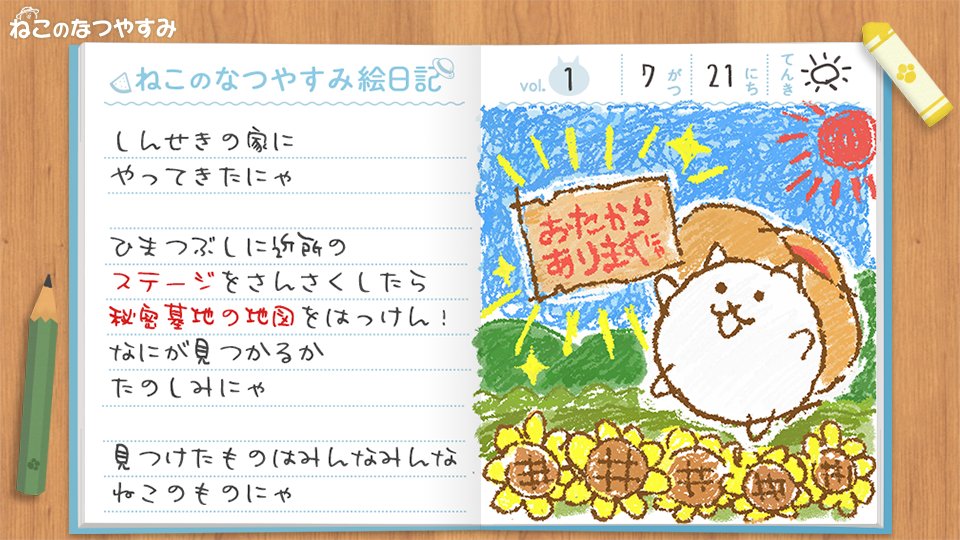 ねこのなつやすみ
ねこのなつやすみ絵日記
しんせきの家に
やってきたにゃ
ひまつぶしに近所の
ステージをさんさくしたら
秘密基地の地図をはっけん!
なにが見つかるか
たのしみにゃ
見つけたものはみんなみんな
ねこのものにゃ
vol. 1 7 がつ 21 にち てんき
おたから
ありますにゃ